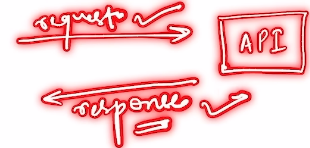 request
API
response